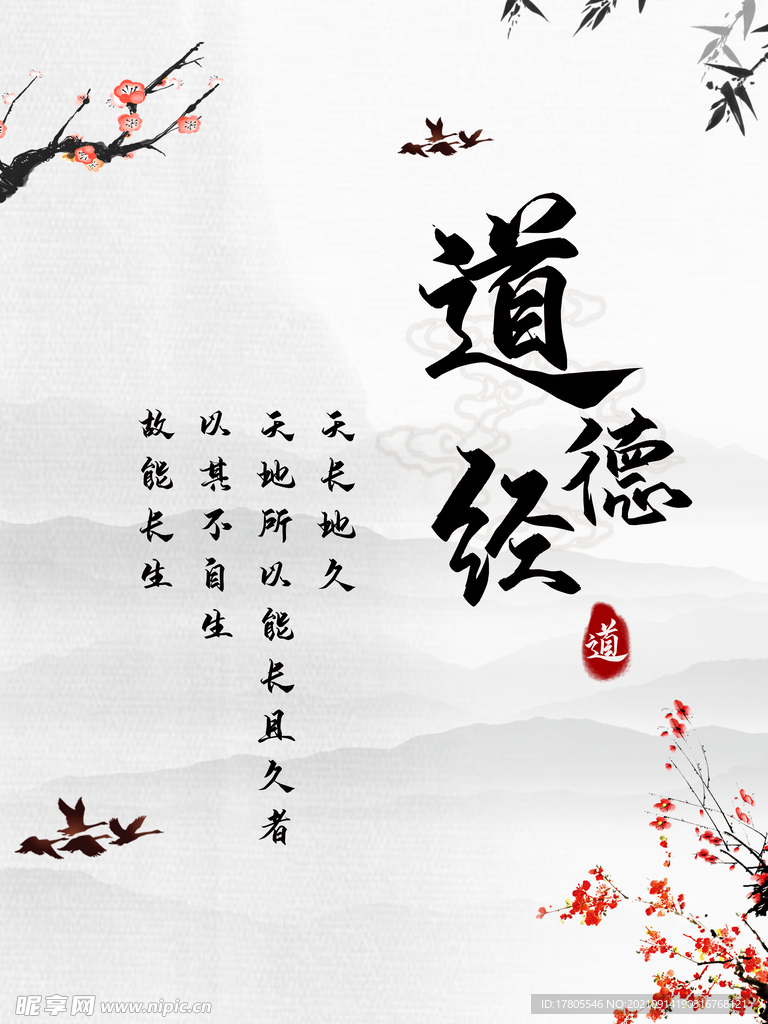 道
德
经
道
天长地久
天地所以能长且久者
以其不自生
故能长生
昵享网 www.nipic.cn
ID:17805546 NO:20210914190316768421